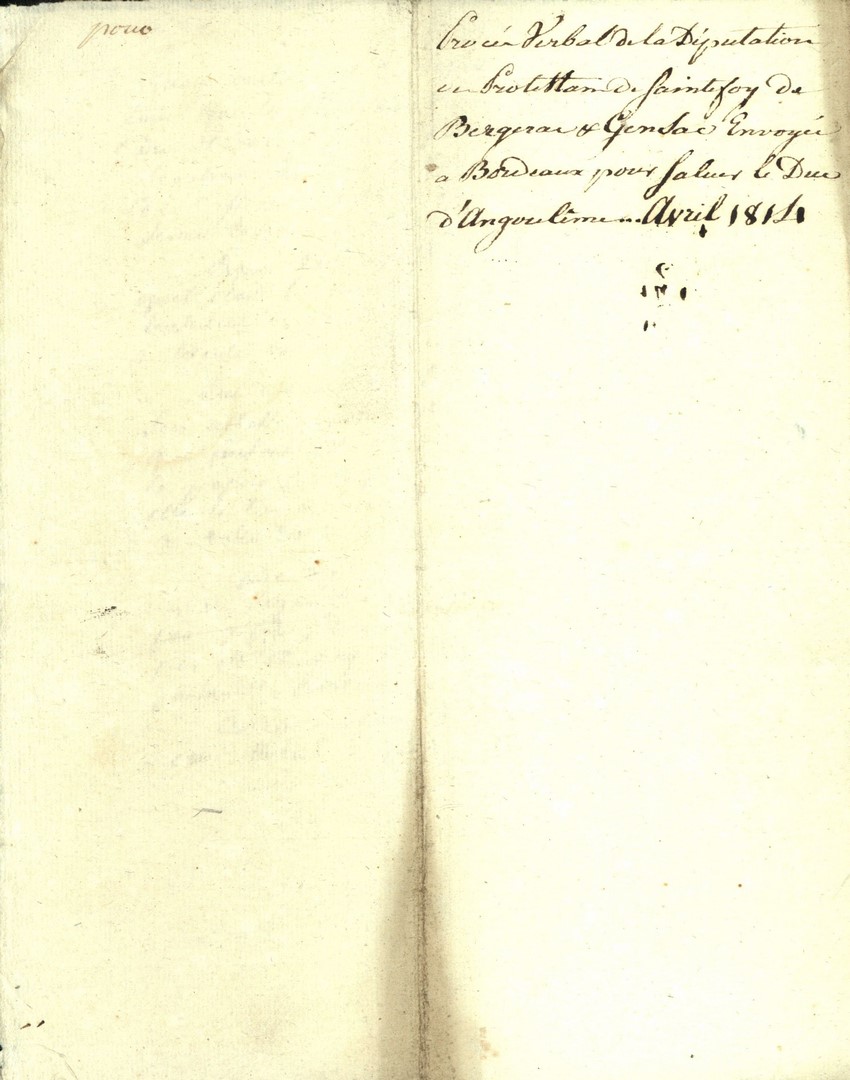 pouo
Procès Verbal de la Députation
des Protestans de Saintefoy de
Bergerac & Gensac Envoyée
a Bordeaux pour Saluer le Duc
d'Angoulême .. Avril 1814